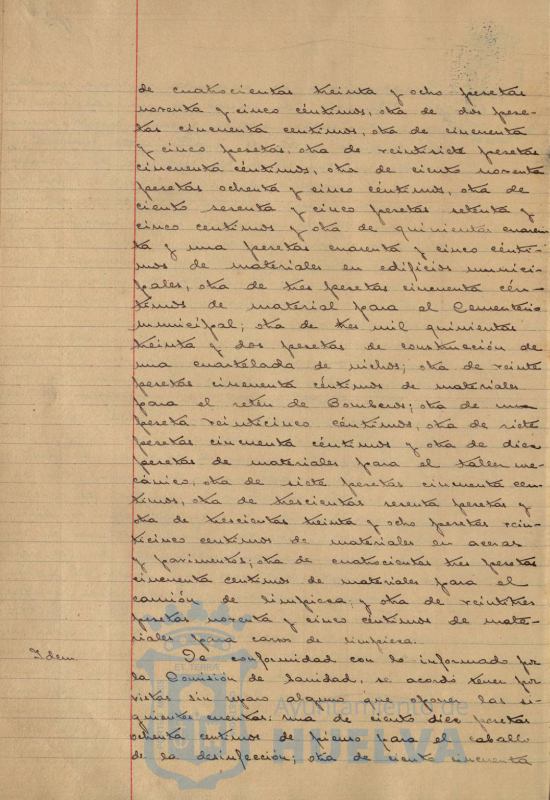 de cuatrocientas treinta y ocho pesetas
noventa y cinco céntimos, otra de dos pese-
tas cincuenta centimos, otra de cincuenta
y cinco pesetas, otra de veintisiete pesetas
cincuenta céntimos, otra de ciento noventa
pesetas ochenta y cinco céntimos, otra de
ciento sesenta y cinco pesetas setenta y
cinco centimos y otra de quinientas cuaren
ta y una pesetas cuarenta y cinco cénti-
mos de materiales en edificios munici-
pales, otra de tres pesetas cincuenta cén-
timos de material para el Cementerio
municipal; otra de tres mil quinientas
treinta y dos pesetas de construcción de
una cuartelada de nichos; otra de veinte
pesetas cincuenta céntimos de materiales
para el retén de Bomberos; otra de una
peseta veinticinco céntimos, otra de siete
pesetas cincuenta céntimos y otra de diez
pesetas de materiales para el taller me-
cánico, otra de siete pesetas cincuenta cen-
timos, otra de trescientas sesenta pesetas y
otra de trescientas treinta y ocho pesetas vein-
ticinco centimos de materiales en aceras
y pavimentos; otra de cuatrocientas tres pesetas
cincuenta centimos de materiales para el
camión de limpieza, y otra de veintitres
pesetas noventa y cinco céntimos de mate-
riales para carros de limpieza.
Idem. De conformidad con lo informado por
la Comisión de Sanidad, se acordó tener por
vistas sin reparo alguno que oponer las si-
guientes cuentas: una de ciento diez pesetas
ochenta centimos de pienso para el caballo
de la desinfección; otra de ciento cincuenta
Ayuntamiento de
HUELVA